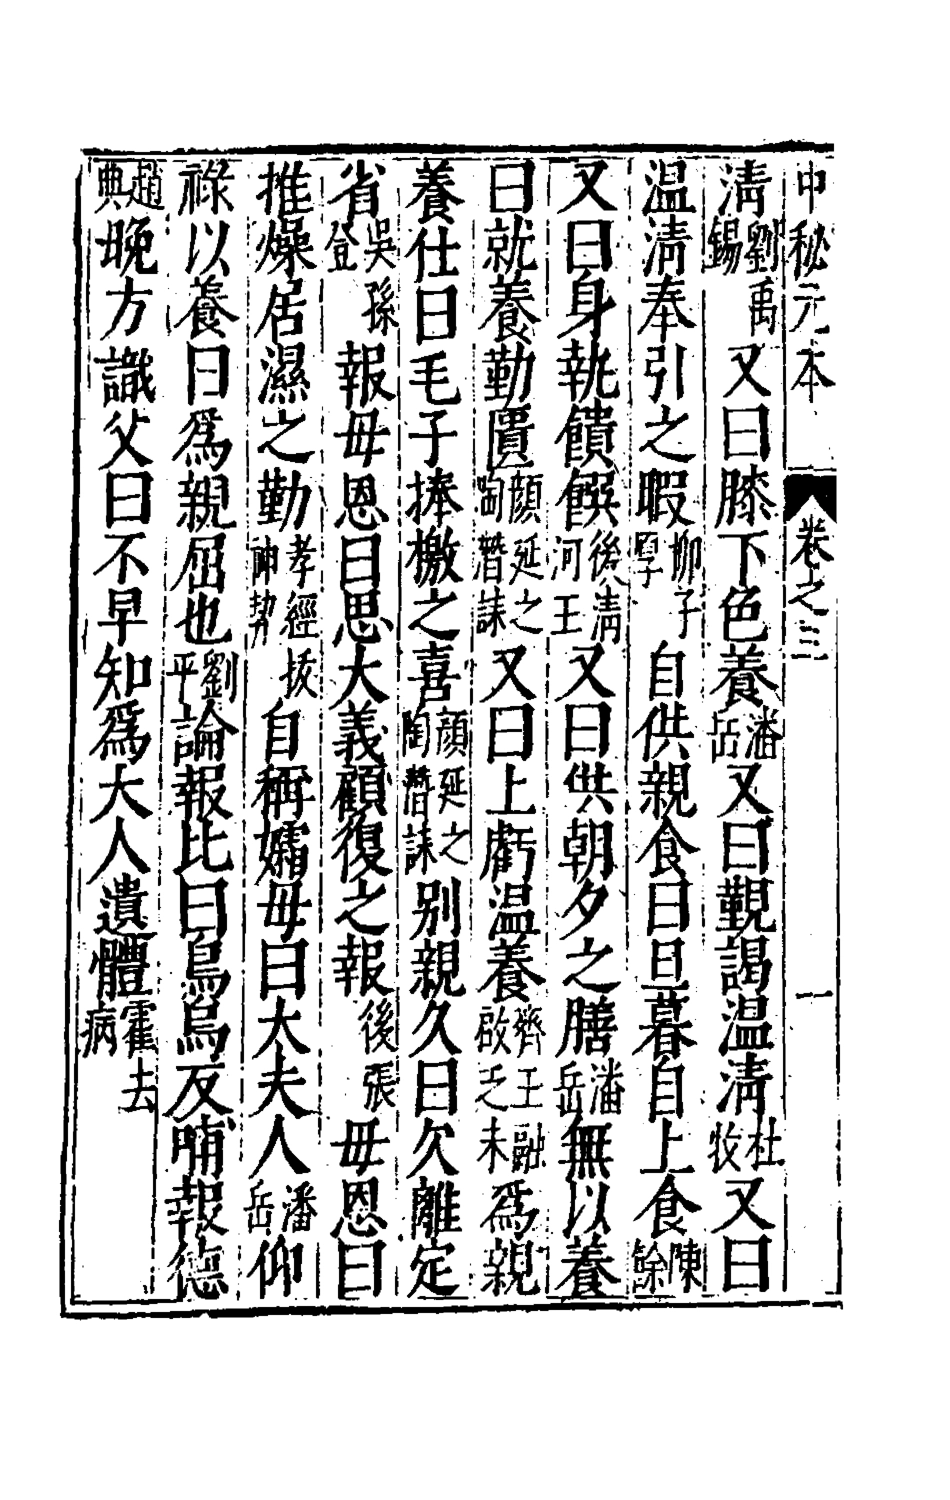 中秘元本 卷之三 一
清劉禹錫又曰膝下色養潘岳又曰覲謁温清杜牧又曰
温清奉引之暇柳子厚自供親食曰旦暮自上食陳餘
又曰身執饋饌後清河王又曰供朝夕之膳潘岳無以養
曰就養勤匱顔延之陶潛誄又曰上虧温養齊王融啟乏未為親
養仕曰毛子捧檄之喜顔延之陶潛誄别親久曰欠離定
省吳孫登報毋恩曰思大義顧復之報後張毋恩曰
推燥居濕之勤孝經抜神契自稱孀毋曰太夫人潘岳仰
祿以養曰爲親屈也劉平論報比曰鳥烏反哺報德
趙典晚方識父曰不早知爲大人遺體霍去病